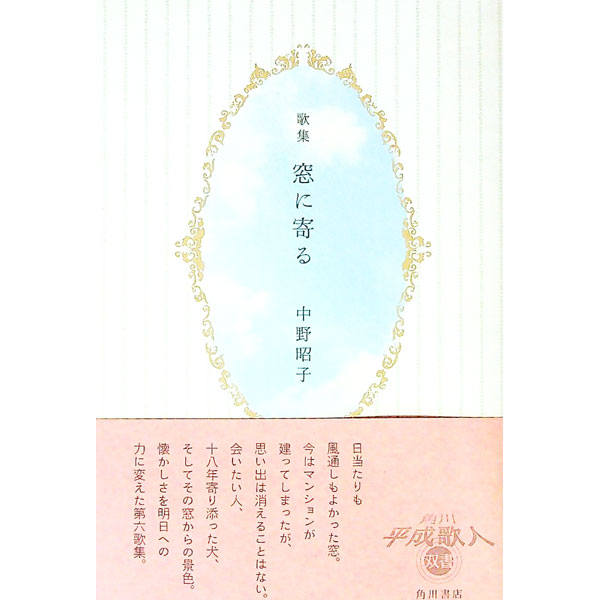 歌集
窓に寄る
中野昭子
日当たりも
風通しもよかった窓。
今はマンションが
建ってしまったが、
思い出は消えることはない。
会いたい人、
十八年寄り添った犬、
そしてその窓からの景色。
懐かしさを明日への
力に変えた第六歌集。
角川
平成歌人
双書
角川書店